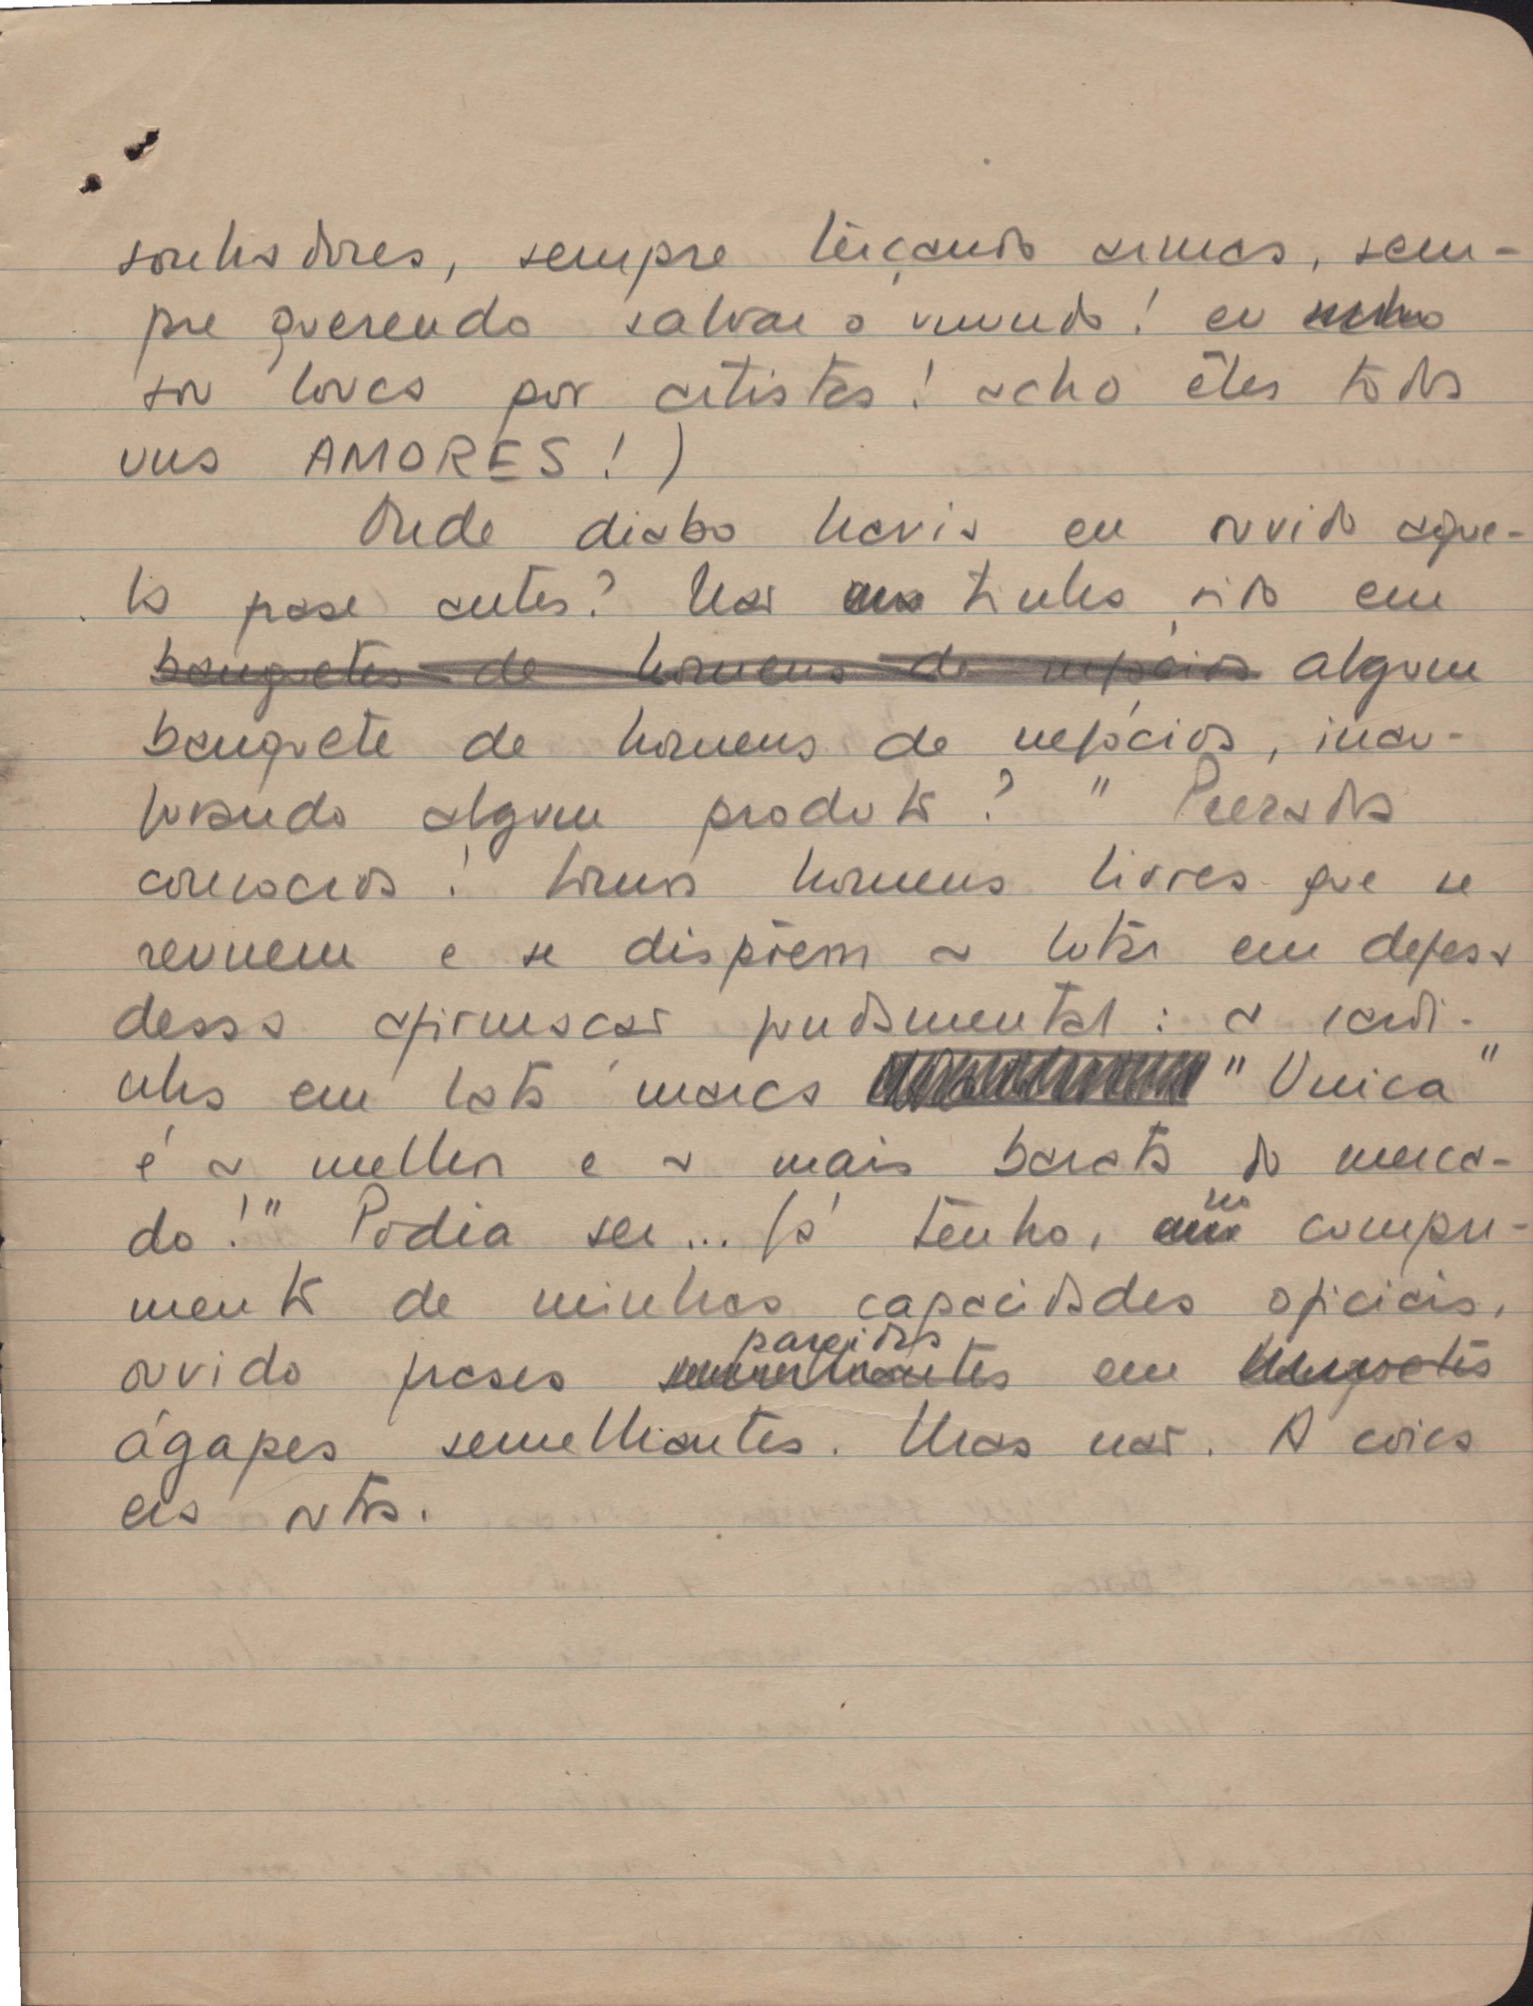 sonhadores, sempre terçando armas, sem-
pre querendo salvar o mundo! eu
sou louca por artistas! acho êles todos
uns AMORES!)
Onde diabo havia eu ouvido aque-
la frase antes? Não tinha sido em
banquetes de homens de negócios algum
banquete de homens de negócios, inau-
gurando algum produto? "Prezados
consocios! Somos homens livres que se
reunem e se dispõem a lutar em defesa
dessa afirmação fundamental: a sardi-
nha em lata marca "Unica"
é a melhor e a mais barata do merca-
do!" Podia ser... Já tenho, no compri-
mento de minhas capacidades oficiais,
ouvido frases semelhantes parecidas em banquetes
ágapes semelhantes. Mas não. A coisa
era outra.